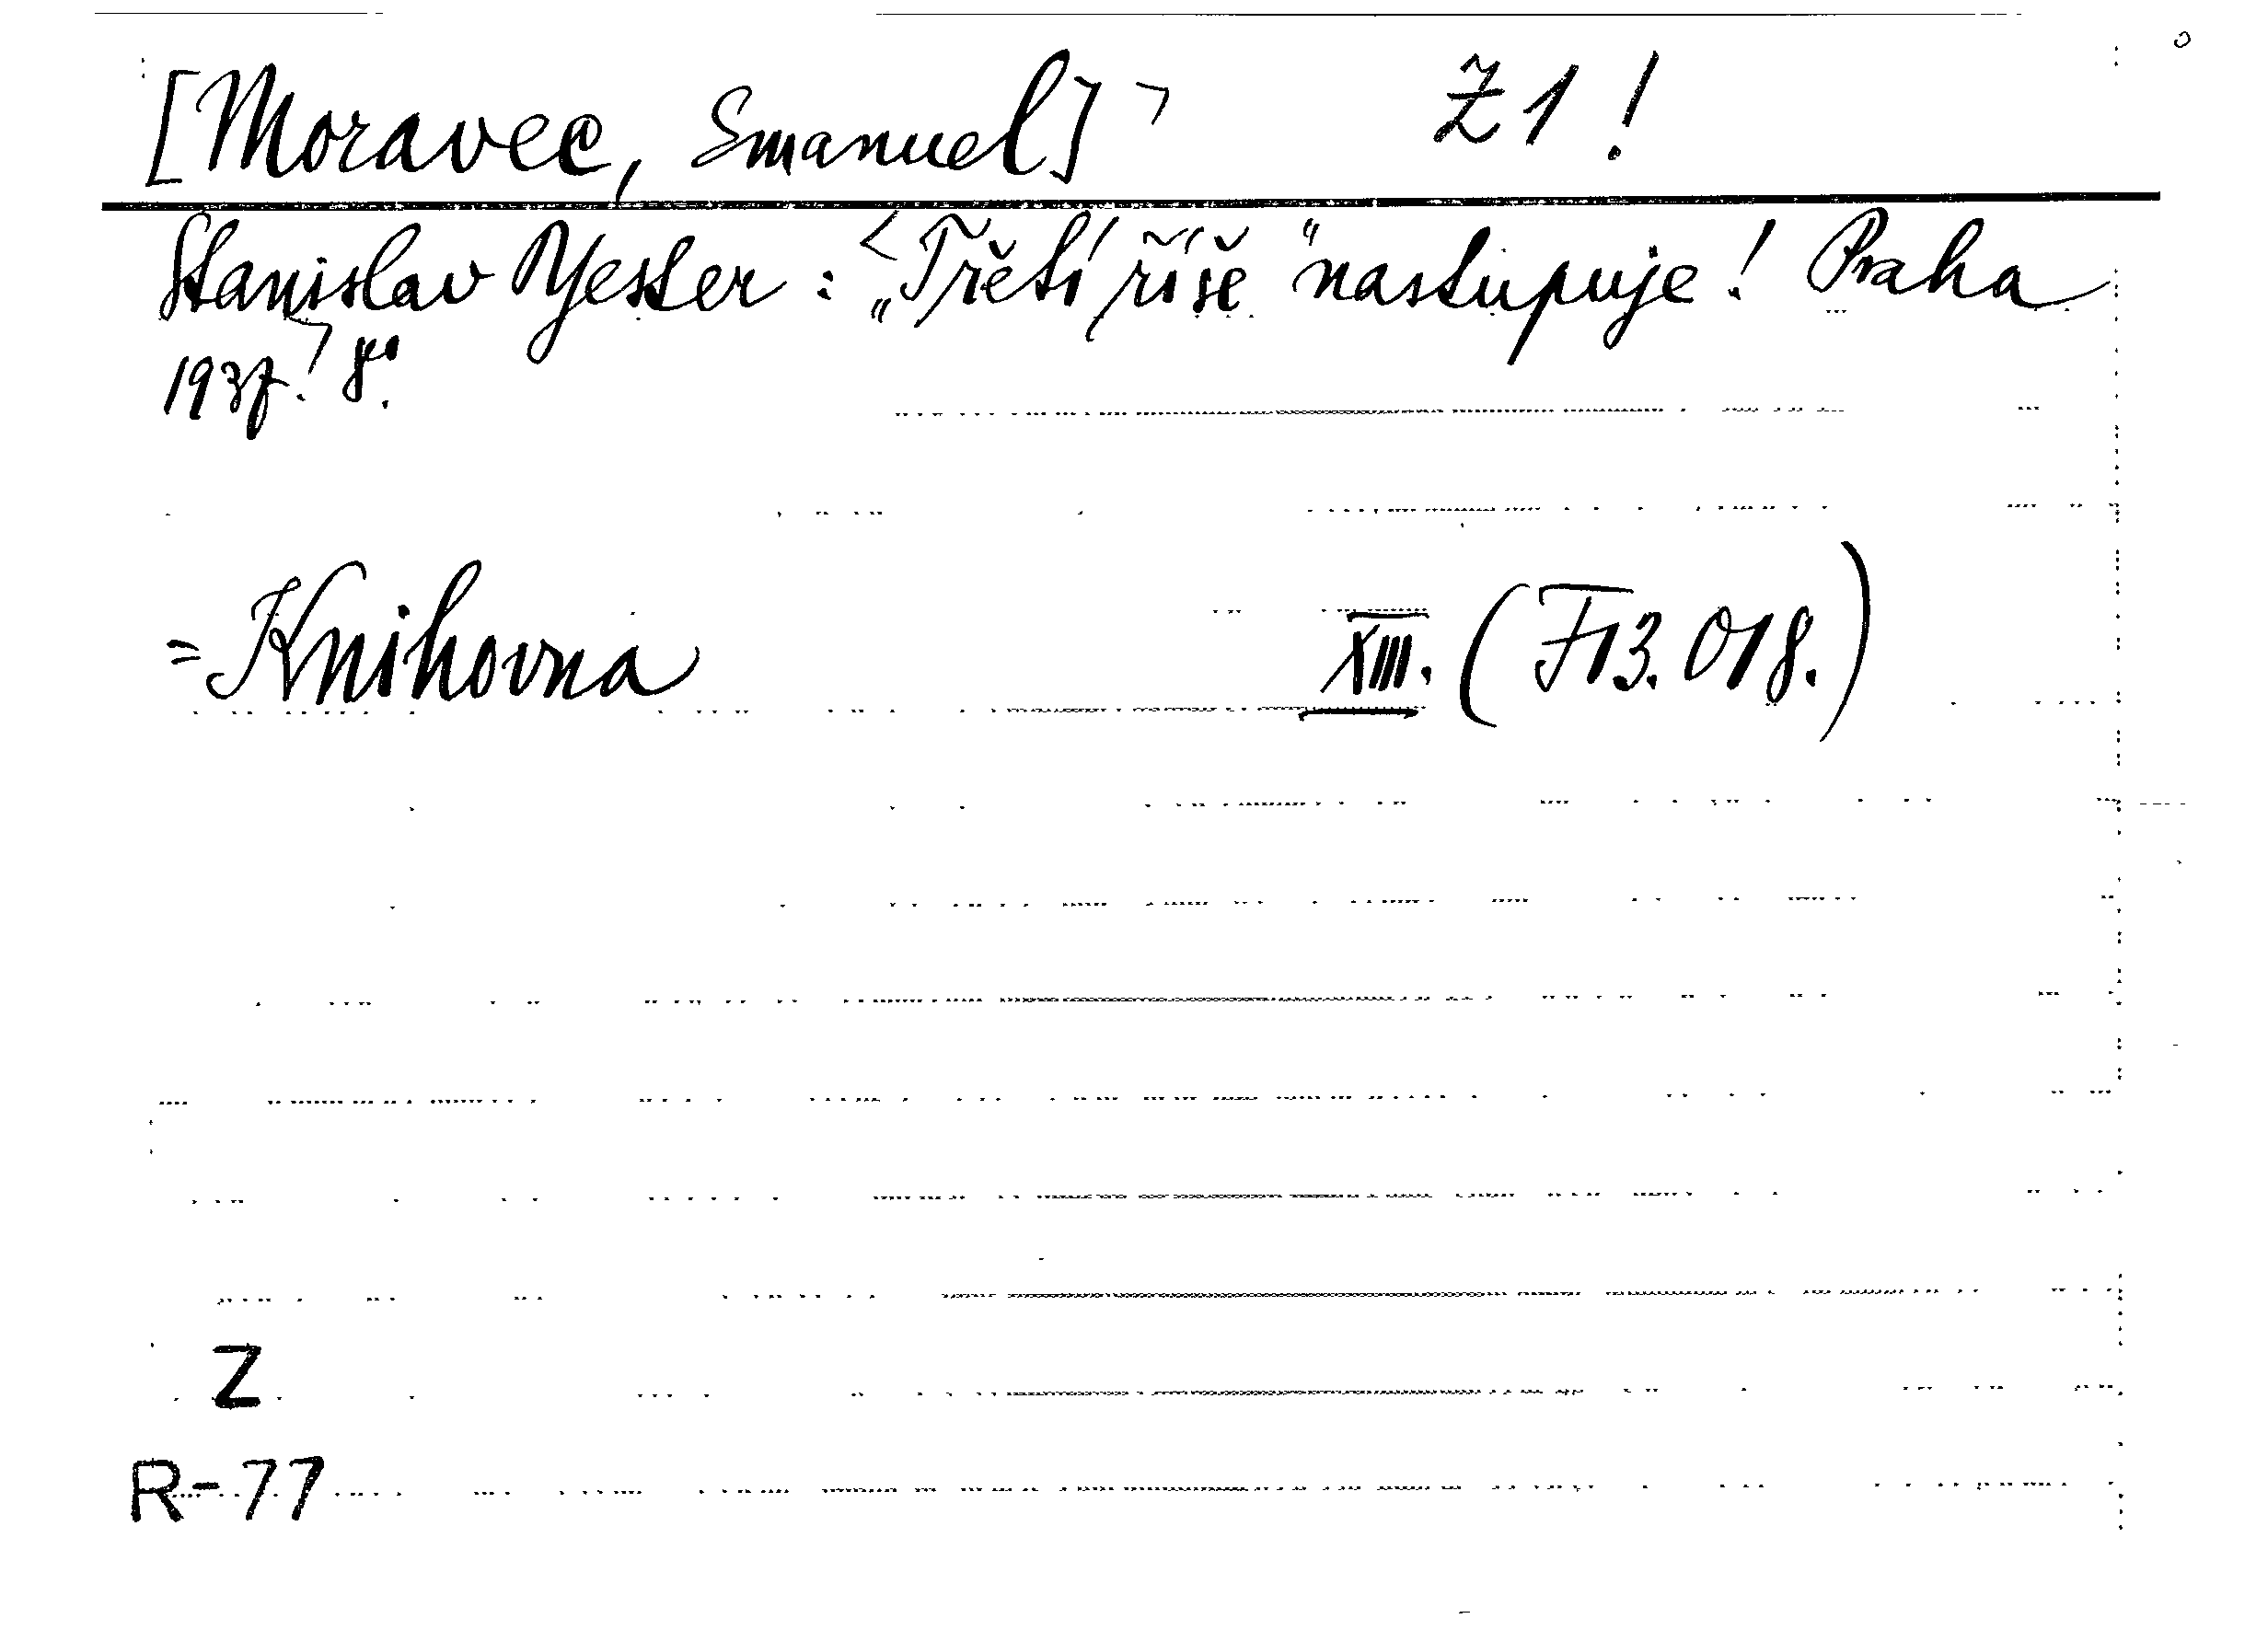 [Moravec, Emanuel] Ž 1!
Stanislav Yester: „Třetí říše" nastupuje! Praha
1937. 8°.
= Knihovna XIII. (F 13.018.)
Z
R-77